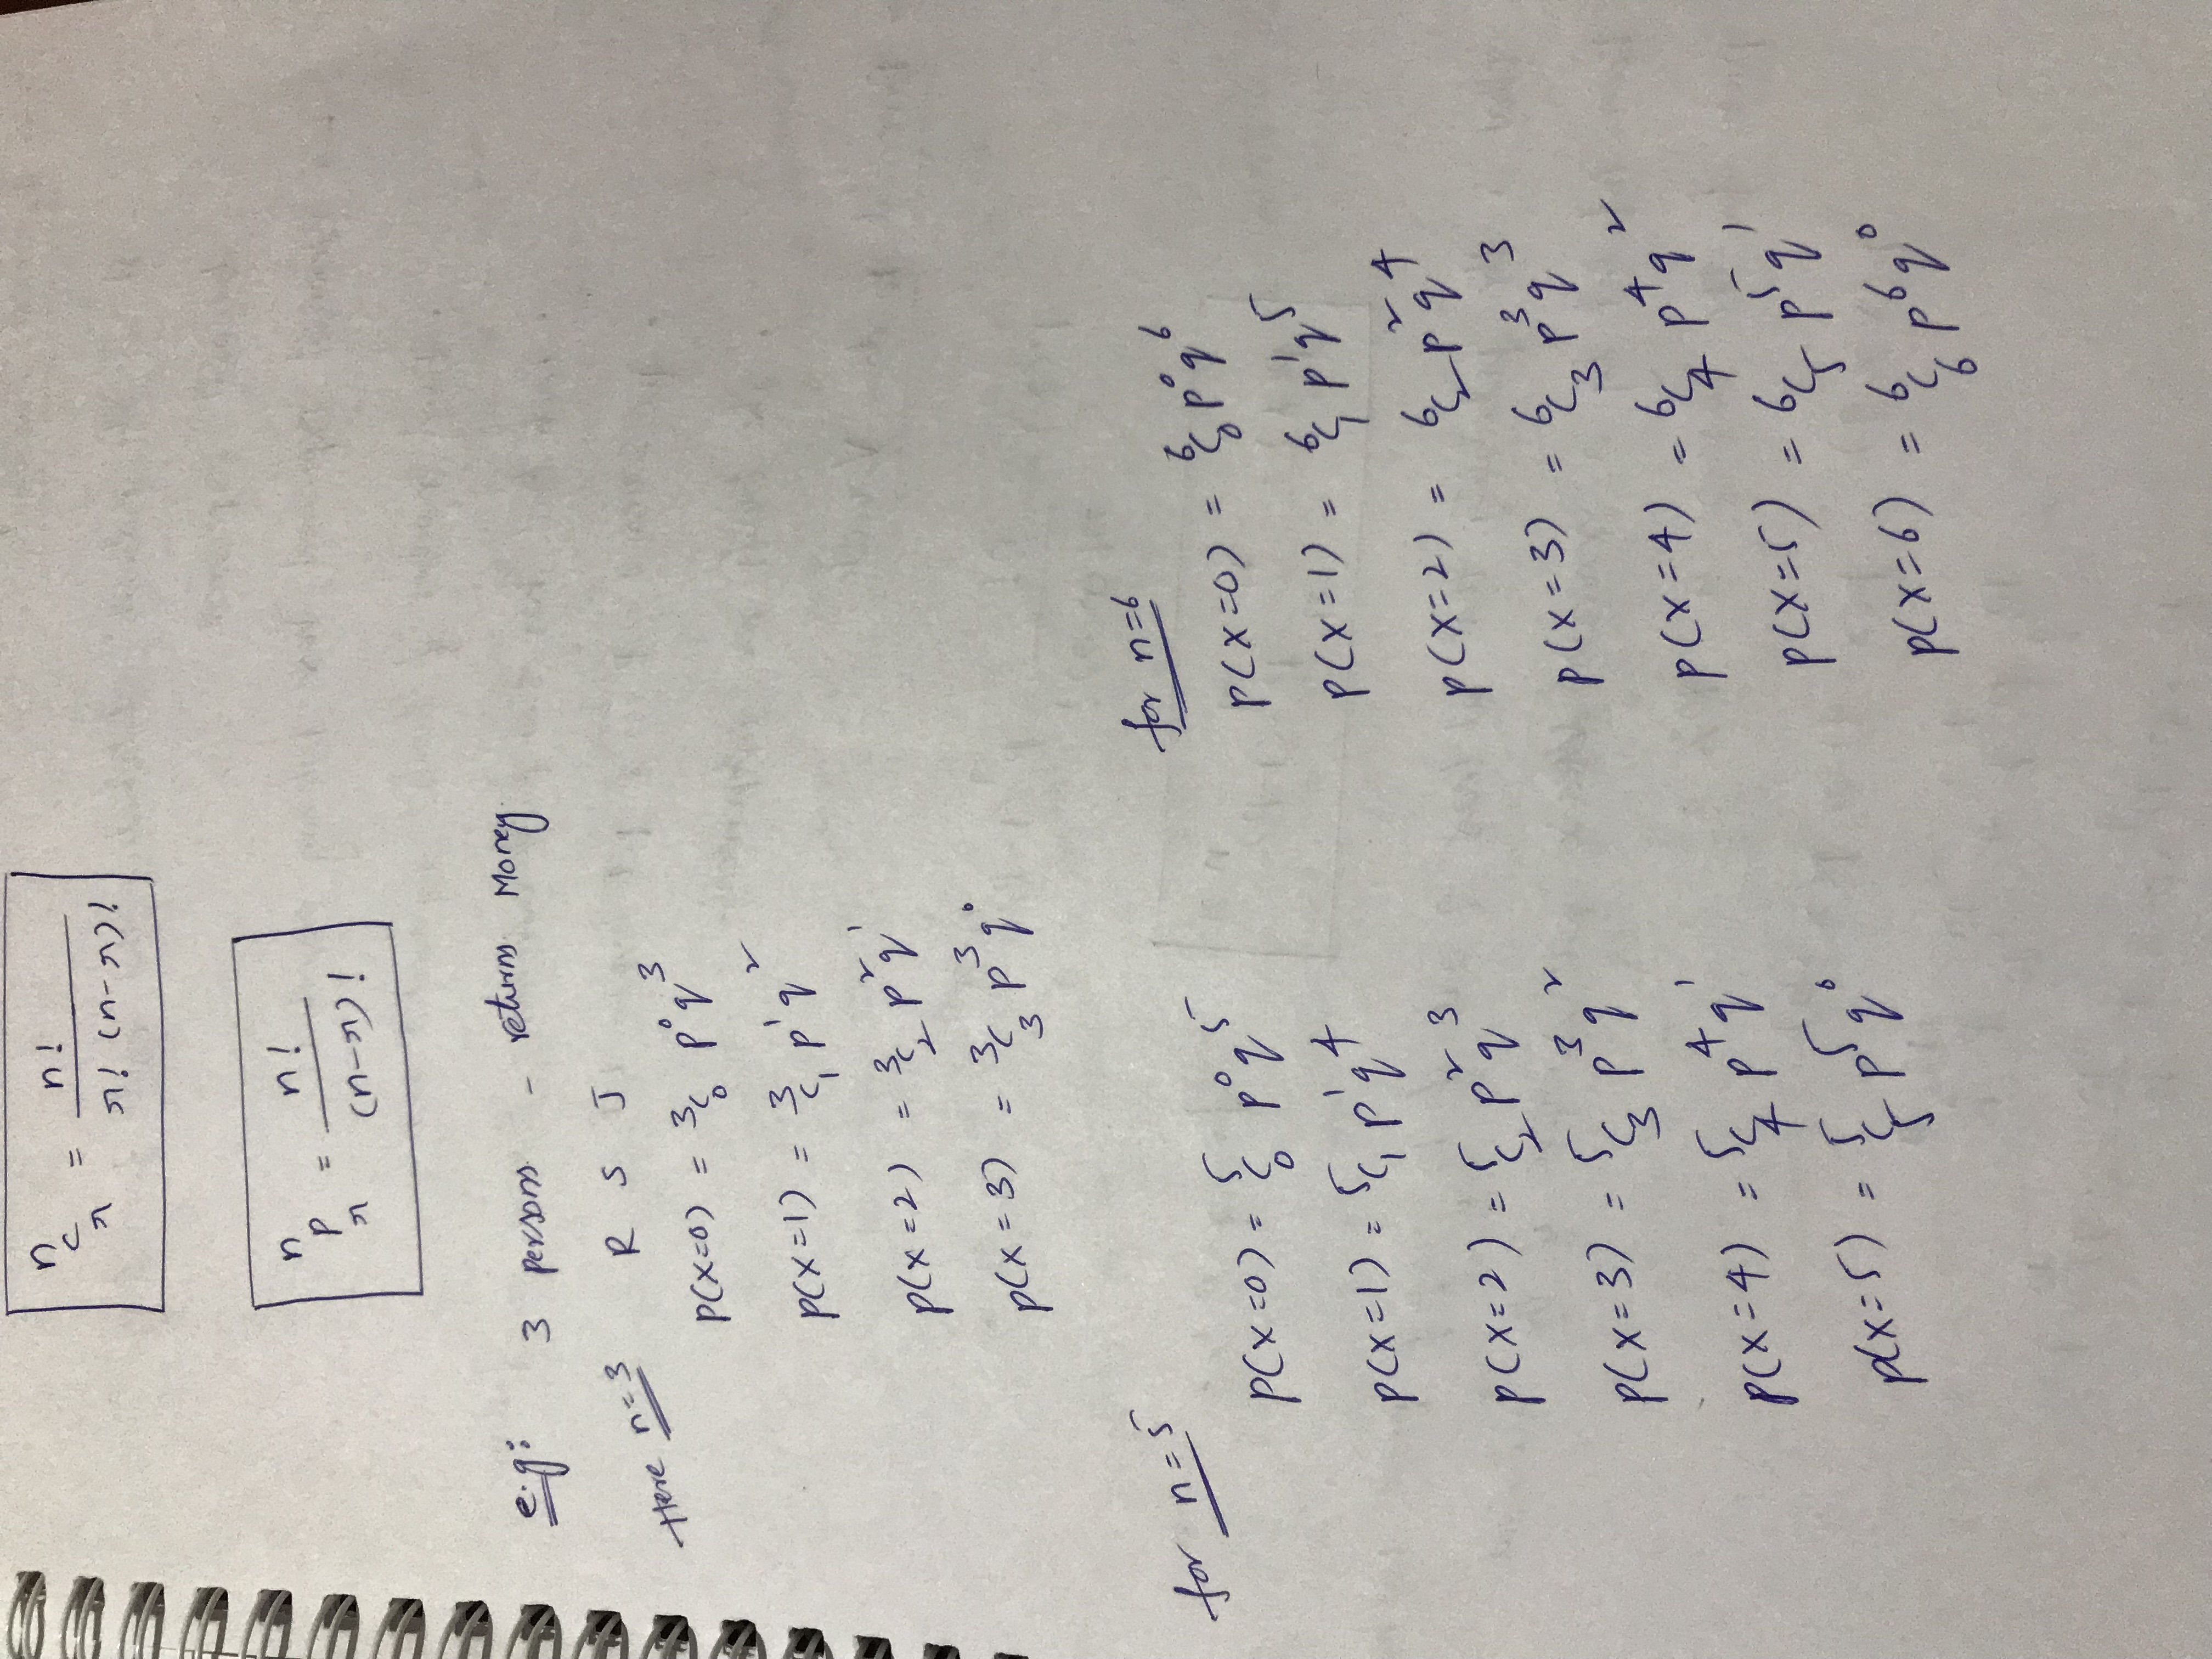 nCr = n! / r! (n-r)!
nPr = n! / (n-r)!
e.g: 3 persons - returns Money
Here n=3 R S J
P(X=0) = ³C₀ p⁰q³
P(X=1) = ³C₁ p¹q²
P(X=2) = ³C₂ p²q¹
P(X=3) = ³C₃ p³q⁰
for n=5
P(X=0) = ⁵C₀ p⁰q⁵
P(X=1) = ⁵C₁ p¹q⁴
P(X=2) = ⁵C₂ p²q³
P(X=3) = ⁵C₃ p³q²
P(X=4) = ⁵C₄ p⁴q¹
P(X=5) = ⁵C₅ p⁵q⁰
for n=6
P(X=0) = ⁶C₀ p⁰q⁶
P(X=1) = ⁶C₁ p¹q⁵
P(X=2) = ⁶C₂ p²q⁴
P(X=3) = ⁶C₃ p³q³
P(X=4) = ⁶C₄ p⁴q²
P(X=5) = ⁶C₅ p⁵q¹
P(X=6) = ⁶C₆ p⁶q⁰